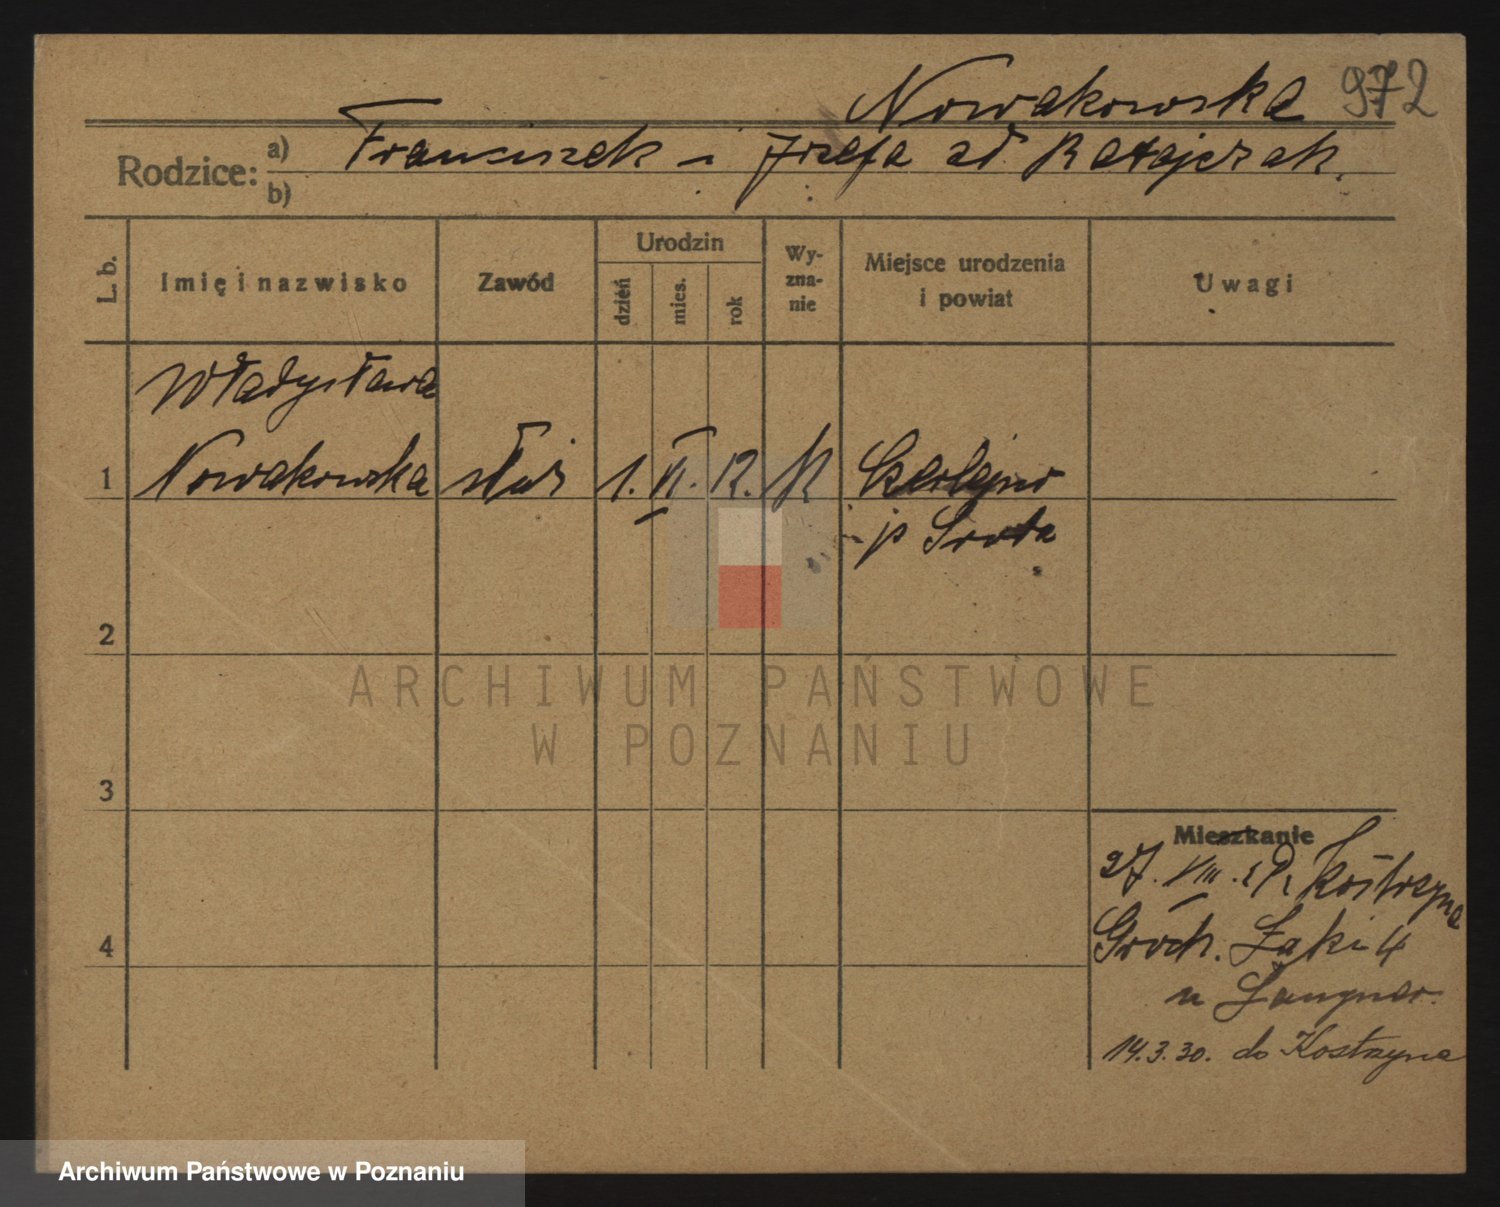 Nowakowska 972
Rodzice: a) Franciszek i Józefa zd. Ratajczak.
b)
L. b. Imię i nazwisko Zawód Urodzin dzień mies. rok Wyzna-nie Miejsce urodzenia i powiat Uwagi
Władysława
1 Nowakowska służ 1. VI. 12. K Czerlejno
p Środa
2
ARCHIWUM PAŃSTWOWE
W POZNANIU
3
Mieszkanie
27. VIII. z Kostrzyna
4 Groch. Łąki 4
u
14.3.30. do Kostrzyna
Archiwum Państwowe w Poznaniu